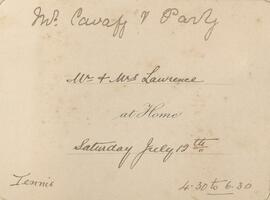 Mr. Cavafy & Party
Mr & Mrs Lawrence
at Home
Saturday July 12th
Tennis
4.30 to 6.30